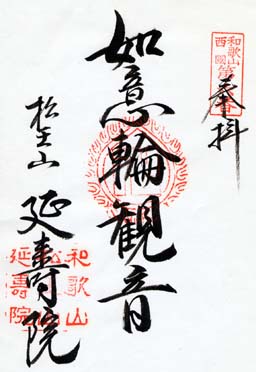 奉拝
如意輪観音
松生山 延壽院
和歌山
西國
和歌山
延壽院